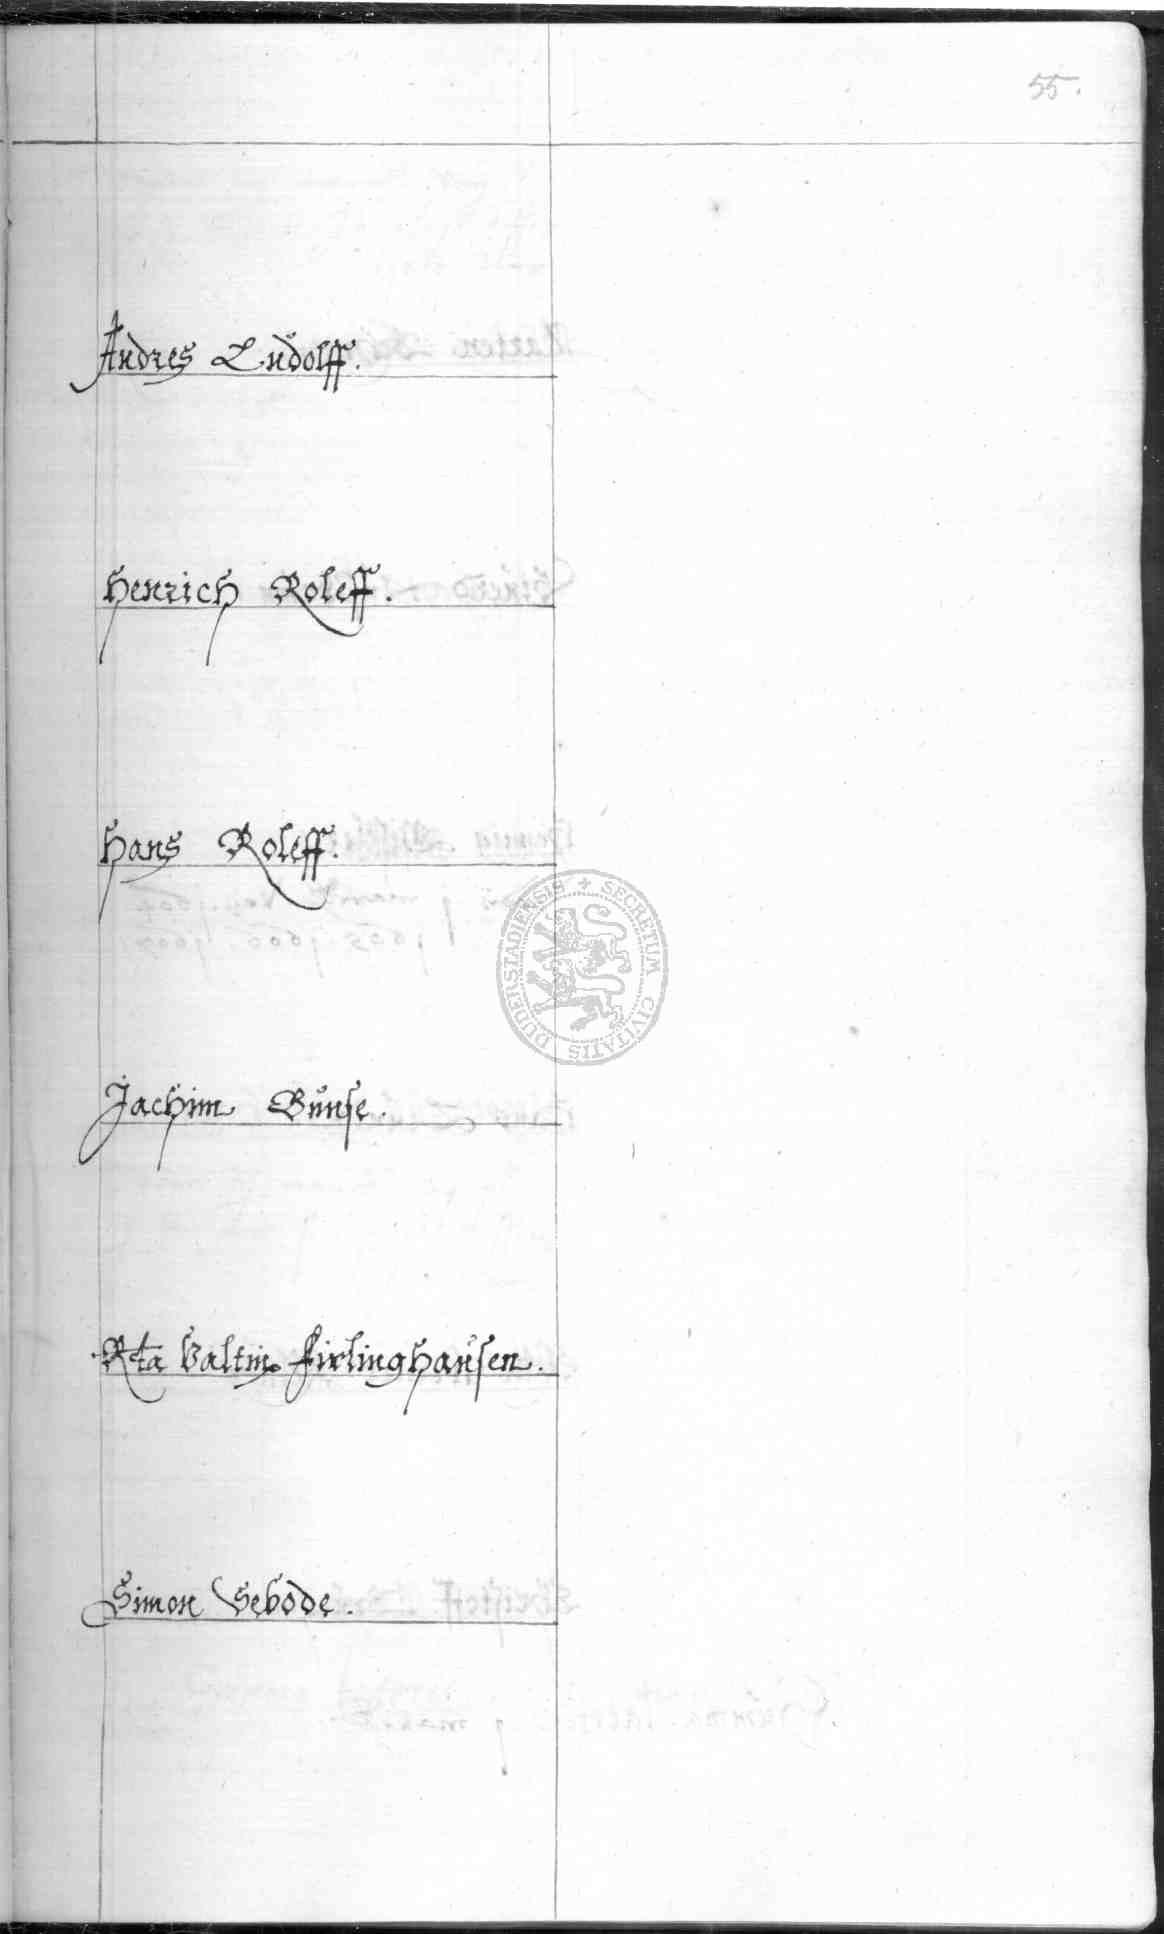 55.
Andres Ludolff.
Henrich Roleff.
Hans Roleff.
DUDERSTADIENSIS + SECRETUM CIVITATIS
Jachim Bunse.
Rta Valtin Firlinghausen.
Simon Sebode.